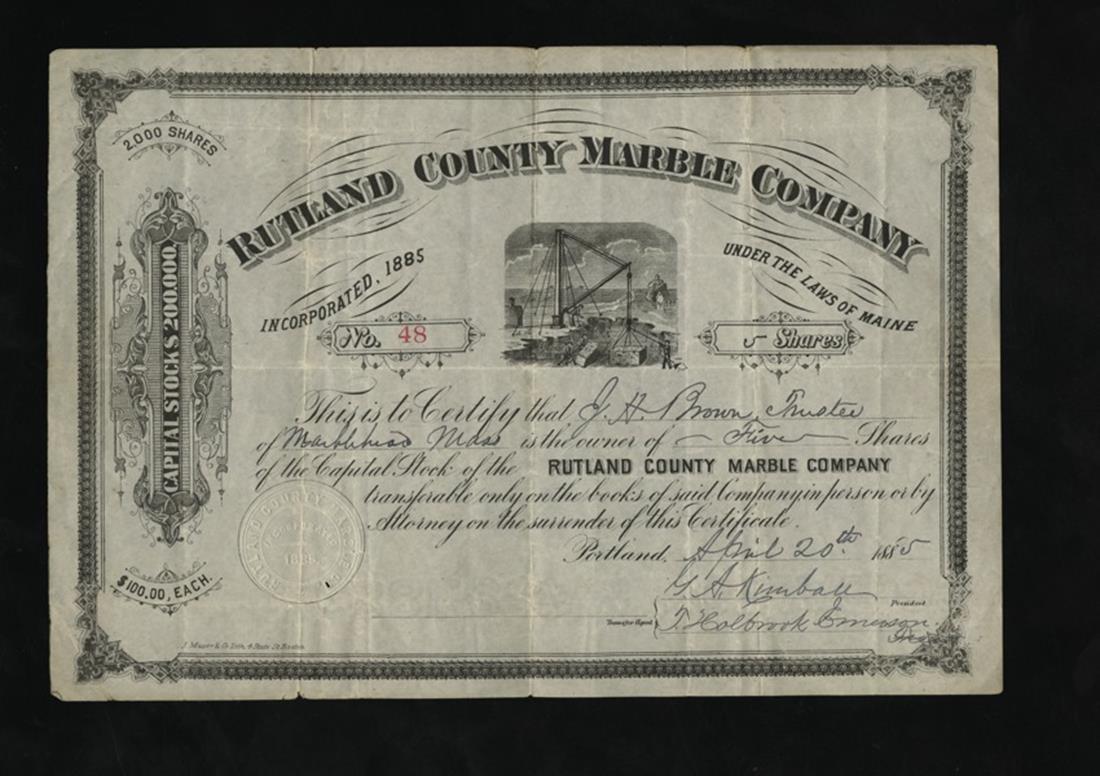 2,000 SHARES
RUTLAND COUNTY MARBLE COMPANY
INCORPORATED, 1885
UNDER THE LAWS OF MAINE
No. 48
5 Shares
CAPITAL STOCK $200.000
This is to Certify that J. H. Brown, Trustee
of Marblehead Mass is the owner of Five Shares
of the Capital Stock of the RUTLAND COUNTY MARBLE COMPANY
transferable only on the books of said Company, in person or by
Attorney on the surrender of this Certificate.
Portland, April 20th 1885
RUTLAND COUNTY MARBLE CO.
INCORPORATED
1885
$100.00, EACH.
G. A. Kimball
President
Transfer Agent
T. Holbrook Emerson
J. Mayer & Co. Lith. 4 State St. Boston